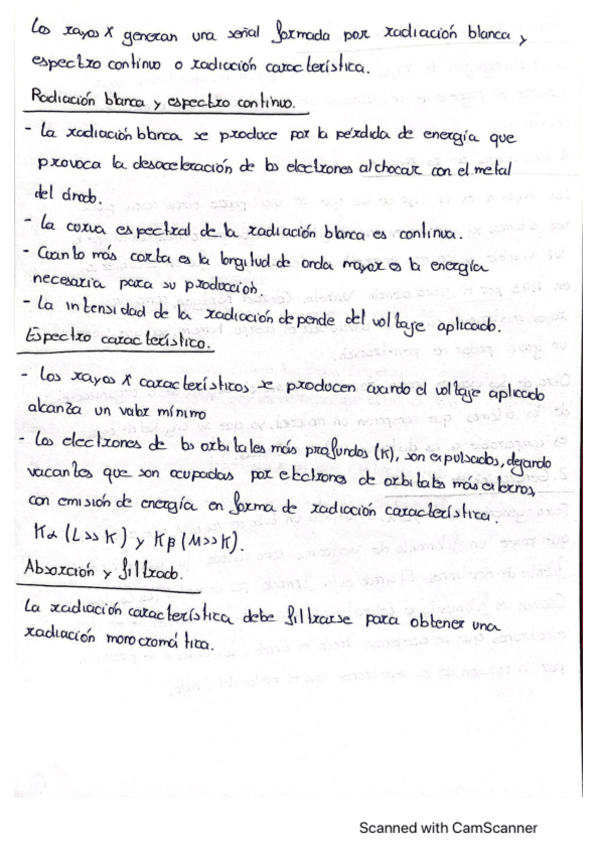 Los rayos X generan una señal formada por radiación blanca y
espectro continuo o radiación característica.
Radiación blanca y espectro continuo.
- La radiación blanca se produce por la pérdida de energía que
provoca la desaceleración de los electrones al chocar con el metal
del ánodo.
- La curva espectral de la radiación blanca es continua.
- Cuanto más corta es la longitud de onda mayor es la energía
necesaria para su producción.
- La intensidad de la radiación depende del voltaje aplicado.
Espectro característico.
- Los rayos X característicos, se producen cuando el voltaje aplicado
alcanza un valor mínimo
- Los electrones de los orbitales más profundos (K), son expulsados, dejando
vacantes que son ocupadas por electrones de orbitales más externos,
con emisión de energía en forma de radiación característica.
Kα (L>>K) y Kβ (M>>K).
Absorción y filtrado.
La radiación característica debe filtrarse para obtener una
radiación monocromática.
Scanned with CamScanner